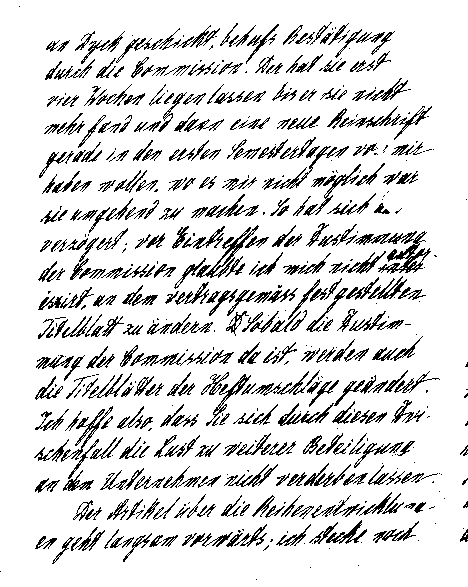 an Dyck geschickt, behufs Bestätigung
durch die Commission. Der hat sie erst
vier Wochen liegen lassen bis er sie nicht
mehr fand und dann eine neue Reinschrift
gerade in den ersten Semestertagen vo. mir
haben wollen, wo es mir nicht möglich war
sie umgehend zu machen. So hat sich
verzögert; vor Eintreffen der Zustimmung
der Commission glaubte ich mich nicht autor-
isirt, an dem vertragsgemäss festgestellten
Titelblatt zu ändern. Sobald die Zustim-
mung der Commission da ist, werden auch
die Titelblätter der Heftumschläge geändert.
Ich hoffe also, dass Sie sich durch diesen Zwi-
schenfall die Lust zu weiterer Beteiligung
an dem Unternehmen nicht verderben lassen
Der Artikel über die Reihenentwicklung-
en geht langsam vorwärts; ich stecke noch